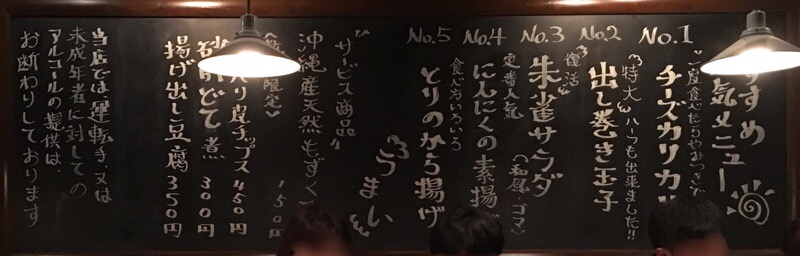 すすめ
気メニュー
No.1
"一度食べたらやみつきで
チーズカリカリ
No.2
"特大" ハーフも出来ました!!
出し巻き玉子
No.3
"復活"
朱雀サラダ
(和風・ゴマ)
No.4
定番人気
にんにくの素揚げ
No.5
食べ方いろいろ
とりのから揚げ
うまい
"サービス商品"
沖縄産天然もずく
150円
限定)
入り皮チップス 450円
砂肝どて煮 300円
揚げ出し豆腐 350円
当店では運転手、又は
未成年者に対しての
アルコールの提供は、
お断わりしております